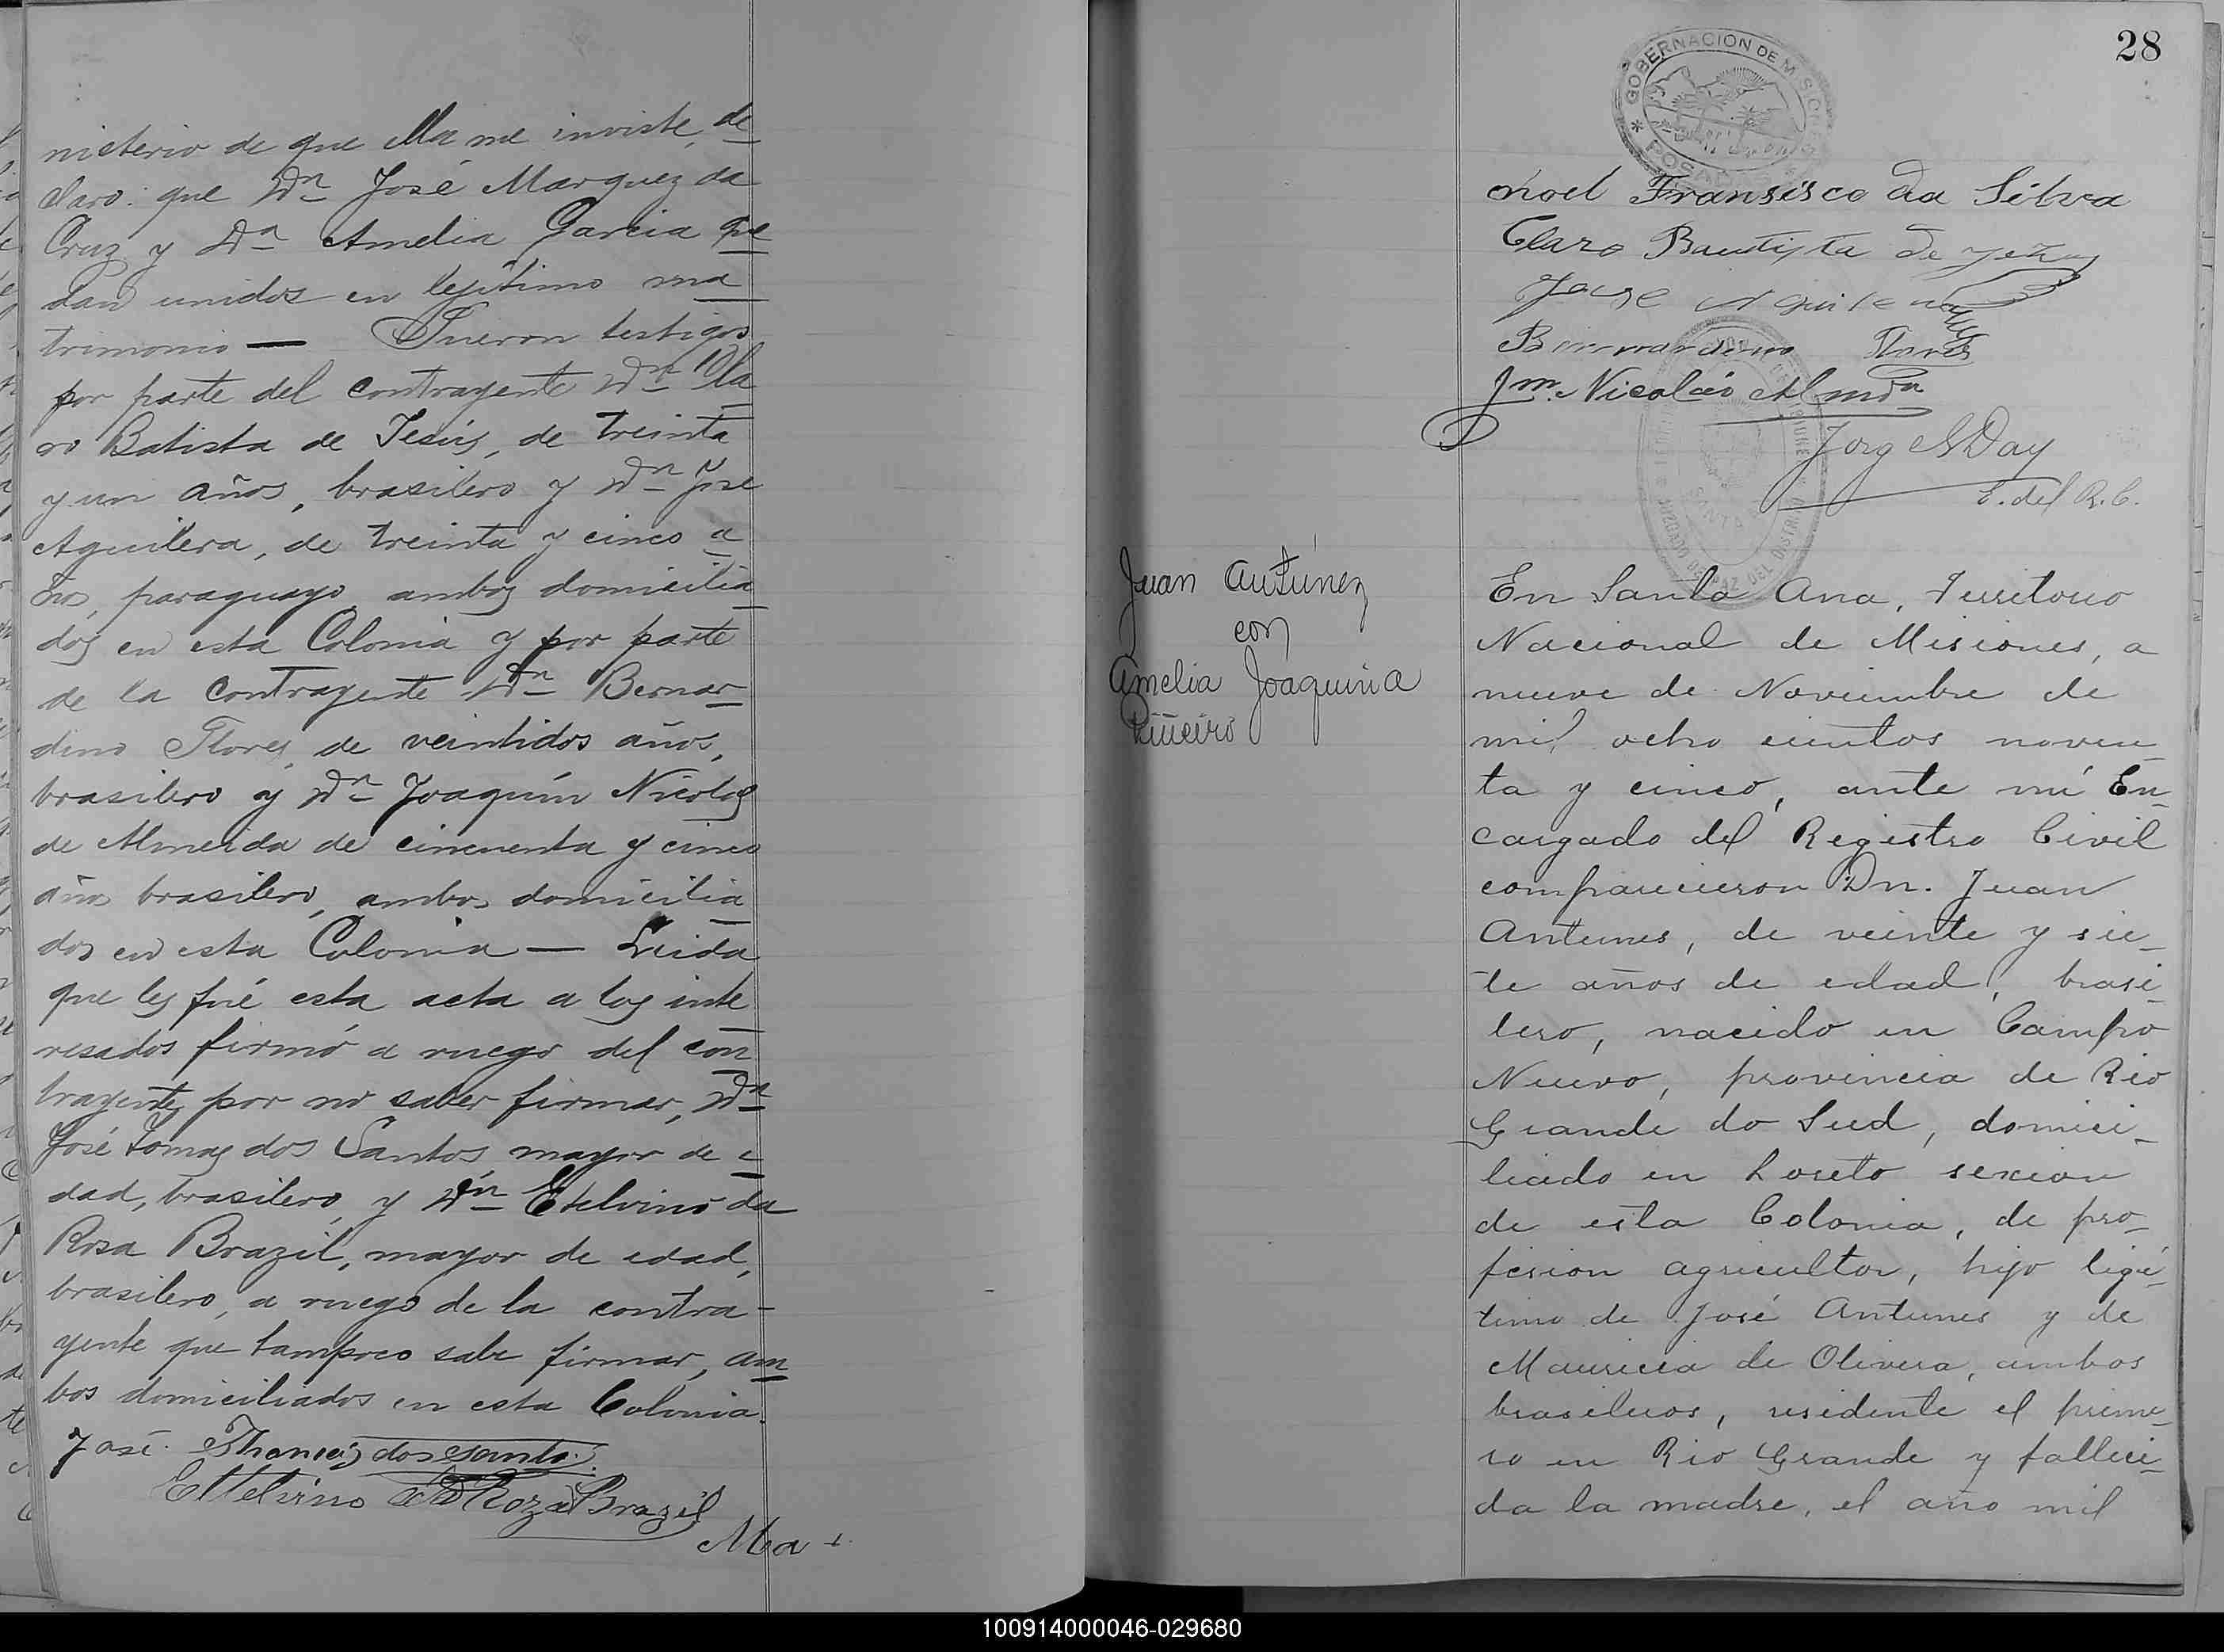 nisterio de que ella me inviste, de
claro: que Dn José Marquez da
Cruz y Da Amelia Garcia que
dan unidos en legítimo ma
trimonio — Fueron testigos
por parte del contrayente Dn Cla
ro Batista de Jesús, de treinta
y un años, brasilero y Dn José
Aguilera, de treinta y cinco a
ños, paraguayo, ambos domicilia
dos en esta Colonia y por parte
de la contrayente Dn Bernar
dino Flores, de veintidos años,
brasilero y Dn Joaquín Nicolas
de Almeida de cincuenta y cinco
años brasilero, ambos domicilia
dos en esta Colonia — Leida
que les fué esta acta a los inte
resados firmó a ruego del con
trayente, por no saber firmar, Dn
José Tomas dos Santos, mayor de e
dad, brasilero, y Dn Etelvino da
Rosa Brazil, mayor de edad,
brasilero, a ruego de la contra-
yente que tampoco sabe firmar, am
bos domiciliados en esta Colonia.
José Thomas dos Santos
Ettelvino da Roza Brazil
Ma
28
GOBERNACION DE MISIONES
POSADAS
noel Fransisco da Silva
Claro Bautista de Jezus
Jose Aguilera
Bernardino Flores
Jm. Nicoláo Almda
Jorg A Day
E. del R. C.
JUZGADO DE PAZ DEL DISTRITO
SANTA
Juan Antúnez
con
Amelia Joaquina
Riveiro
En Santa Ana, Territorio
Nacional de Misiones, a
nueve de Noviembre de
mil ocho cientos noven
ta y cinco, ante mí En-
cargado del Registro Civil
comparecieron Dn. Juan
Antunes, de veinte y sie-
te años de edad, brasi-
lero, nacido en Campo
Nuevo, provincia de Rio
Grande do Sud, domici-
liado en Loreto sexion
de esta Colonia, de pro-
fesion agricultor, hijo legi-
timo de José Antunes y de
Mauricia de Olivera, ambos
brasileros, residente el prime-
ro en Rio Grande y falleci-
da la madre, el año mil
100914000046-029680